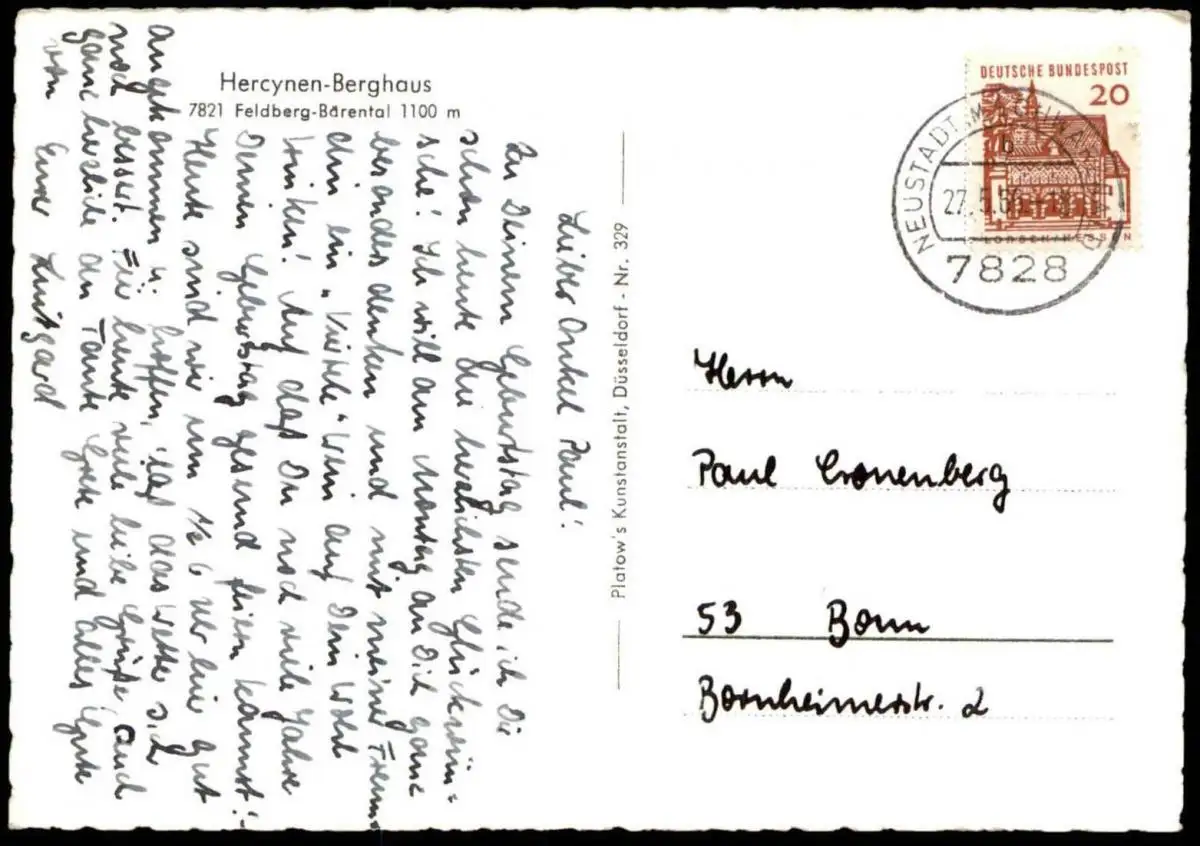 Hercynen-Berghaus
7821 Feldberg-Bärental 1100 m
Lieber Onkel Paul!
Zu Deinem Geburtstag sende ich Dir
schon heute die herzlichsten Glückwün-
sche! Ich will am Montag an Dich ganz
besonders denken und mit meiner Freun-
din ein „Viertele" Wein auf Dein Wohl
trinken! Auf daß Du noch viele Jahre
Deinen Geburtstag gesund feiern kannst!-
Heute sind wir um 1/2 6 Uhr hier gut
angekommen u. hoffen, daß das Wetter sich
noch bessert. Für heute viele liebe Grüße, auch
ganz herzliche an Tante Grete und alles Gute
von Eurer Luitgard
Platow's Kunstanstalt, Düsseldorf - Nr. 329
DEUTSCHE BUNDESPOST
20
LORSCH/HESSEN
NEUSTADT (SCHWARZWALD)
b
27.5.66
7828
Herrn
Paul Cronenberg
53 Bonn
Bornheimerstr. 2